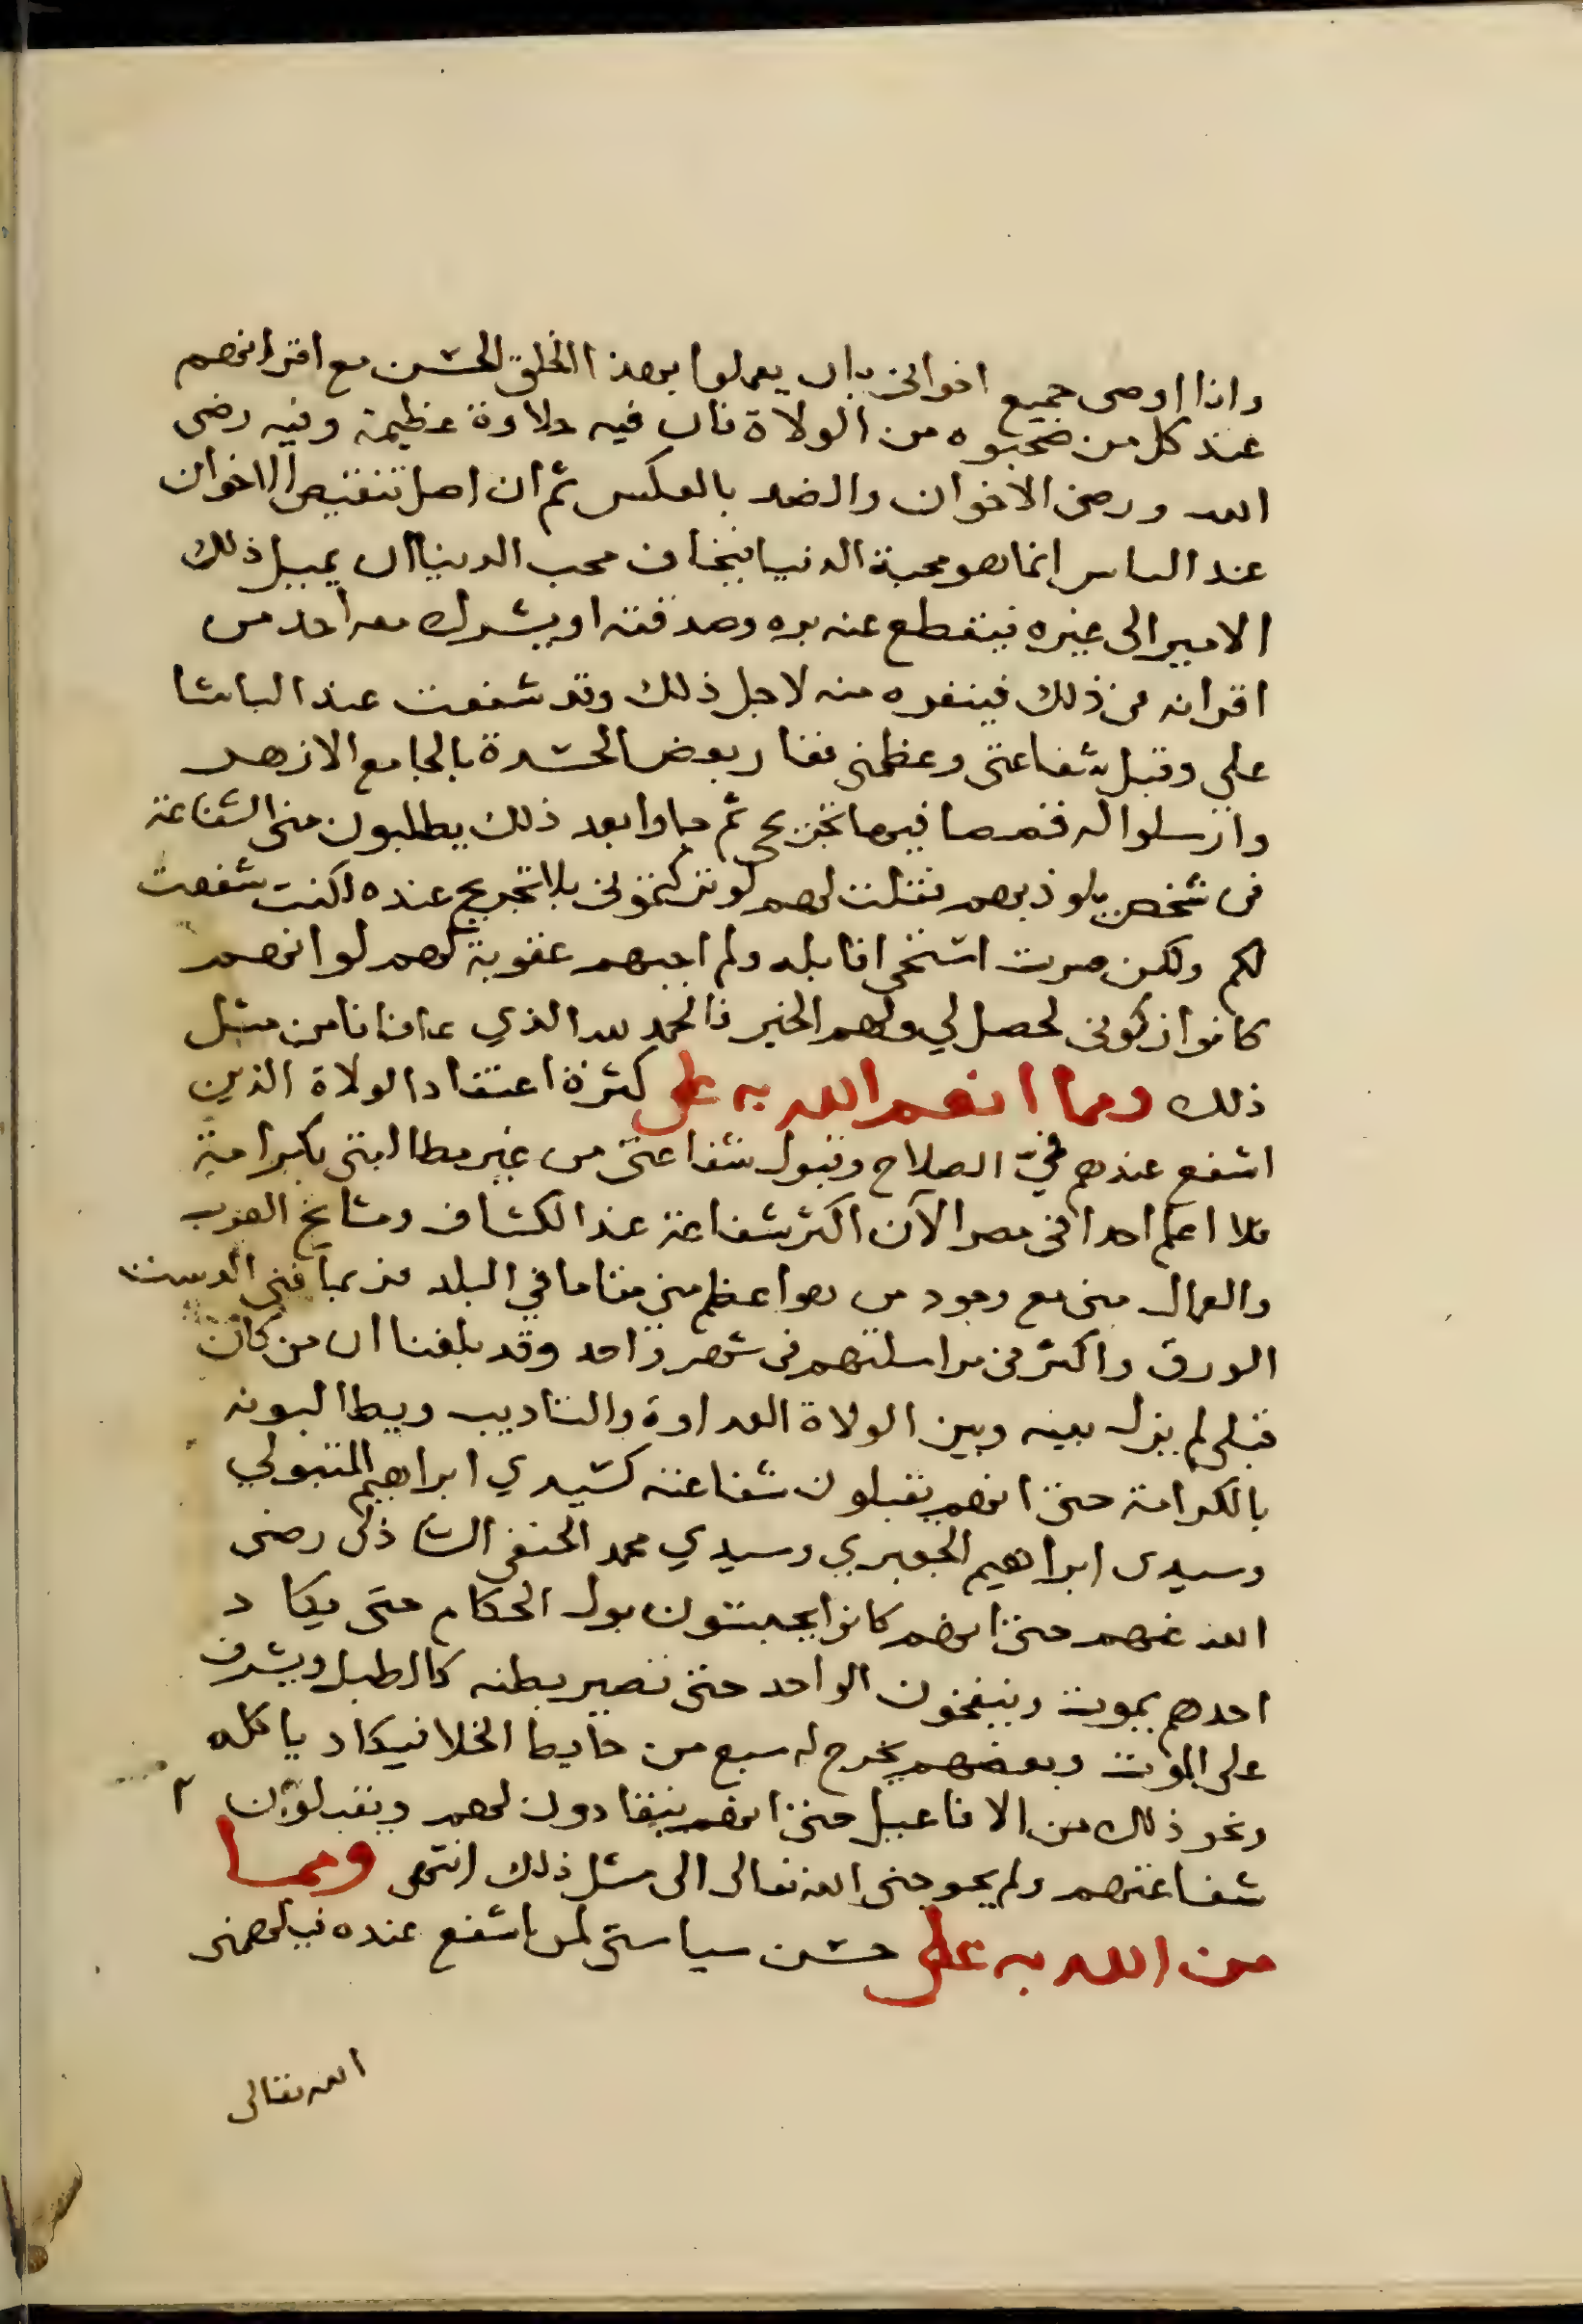 وانا اوصى جميع اخواني بان يعملوا بهذا الخلق الحسن مع اقرانهم
عند كل من صحبوه من الولاة فان فيه حلاوة عظيمة وفيه رضى
الله ورضى الاخوان والضد بالعكس ثم ان اصل تنقيص الاخوان
عند الناس انما هو محبة الدنيا فيخاف محب الدنيا ان يميل ذلك
الامير الى غيره فينقطع عنه بره وصدقته او يشرك معه احد من
اقرانه في ذلك فينفره منه لاجل ذلك وقد شفعت عند الباشا
علي وقبل شفاعتي وعظمني فغار بعض الحسدة بالجامع الازهر
وارسلوا له قصصا فيها تجريحي ثم جاوا بعد ذلك يطلبون مني الشفاعة
في شخص يلوذ بهم فقلت لهم لو تركتموني بلا تجريح عنده لكنت شفعت
لكم ولكن صرت استحي اقابله ولم اجبهم عقوبة لهم لو انهم
كانوا زكوني لحصل لي ولهم الخير فالحمد لله الذي عافانا من مثل
ذلك ومما انعم الله به على كثرة اعتقاد الولاة الذين
اشفع عندهم في الصلاح وقبول شفاعتي من غير مطالبتي بكرامة
فلا اعلم احدا في مصر الآن اكثر شفاعة عند الكشاف ومشايخ العرب
والعمال مني مع وجود من هو اعظم مني مقاما في البلد فربما فنى الدست
الورق واكثر في مراسلتهم في شهر واحد وقد بلغنا ان من كان
قبلي لم يزل بينه وبين الولاة العداوة والتاديب ويطالبونه
بالكرامة حتى انهم يقبلون شفاعته كسيدي ابراهيم المتبولي
وسيدى ابراهيم الجعبري وسيدي محمد الحنفي الشاذلي رضى
الله عنهم حتى انهم كانوا يحبسون بول الحكام حتى يكاد
احدهم يموت وينفخون الواحد حتى تصير بطنه كالطبل ويشرف
على الموت وبعضهم يخرج له سبع من حايط الخلا فيكاد ياكله
ونحو ذلك من الافاعيل حتى انهم ينقادون لهم ويقبلون
شفاعتهم ولم يحوجني الله تعالى الى مثل ذلك انتهى ومما
من الله به على حسن سياستي لمن اشفع عنده فيلهمني
الله تعالى